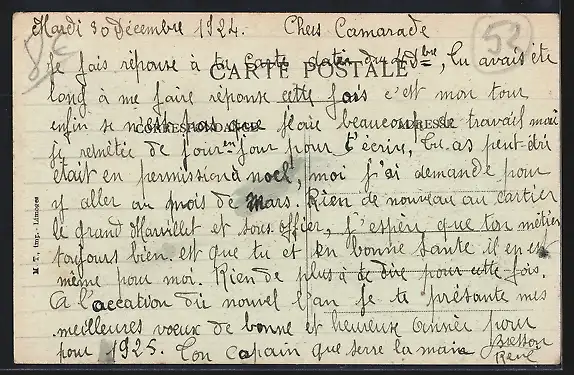 Mardi 30 Décembre 1924. Chers Camarade
8€
53
Je fais réponse à ta carte datée du 4 Dbre, tu avais été
CARTE POSTALE
long à me faire réponse cette fois c'est mon tour
enfin se n'est pas que j'aie beaucoup de travail mai
CORRESPONDANCE
ADRESSE
je remétée de jour en jour pour t'écrire, tu as peut-être
était en permission à noel, moi j'ai demandé pour
y aller au mois de Mars. Rien de nouveau au cartier
le grand et sous officier, j'espère que ton métier
toujours bien. et que tu et en bonne santé il en es
même pour moi. Rien de plus à te dire pour cette fois.
A l'accation du nouvel an je te présante mes
meilleures voeux de bonne et heureuse année pour
pour 1925. Ton copain que serre la main
René
M. T., imp., Limoges